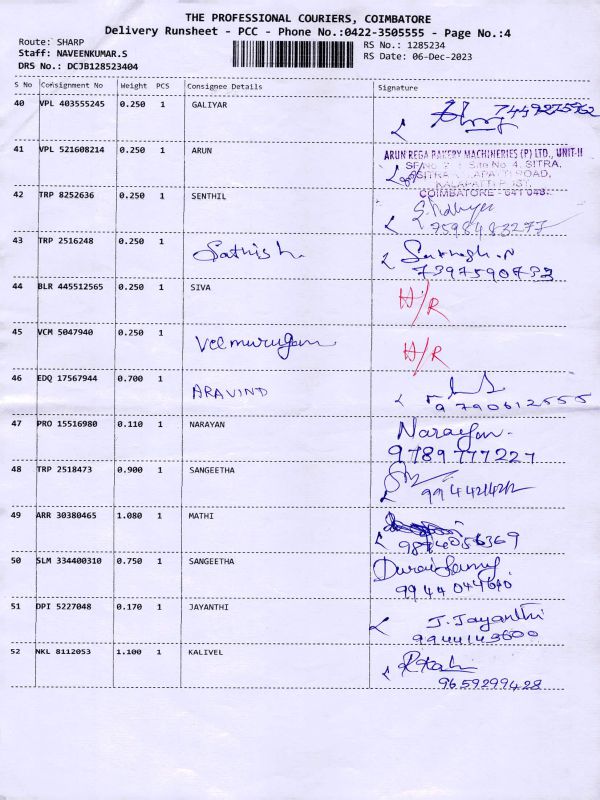 THE PROFESSIONAL COURIERS, COIMBATORE
Delivery Runsheet - PCC - Phone No.:0422-3505555 - Page No.:4
Route: SHARP
RS No.: 1285234
Staff: NAVEENKUMAR.S
RS Date: 06-Dec-2023
DRS No.: DCJB128523404
S No Consignment No Weight PCS Consignee Details Signature
40 VPL 403555245 0.250 1 GALIYAR
41 VPL 521608214 0.250 1 ARUN
ARUN REGA BAKERY MACHINERIES (P) LTD., UNIT-II
Site No. 4, SITRA,
ROAD,
COIMBATORE
42 TRP 8252636 0.250 1 SENTHIL
43 TRP 2516248 0.250 1 Sathish
7397590732
44 BLR 445512565 0.250 1 SIVA H/R
45 VCM 5047940 0.250 1 Velmurugan H/R
46 EDQ 17567944 0.700 1 ARAVIND
790612555
47 PRO 15516980 0.110 1 NARAYAN Narayan.
9789777227
48 TRP 2518473 0.900 1 SANGEETHA
49 ARR 30380465 1.080 1 MATHI
50 SLM 334400310 0.750 1 SANGEETHA
51 DPI 5227048 0.170 1 JAYANTHI J. Jayanthi
9944143600
52 NKL 8112053 1.100 1 KALIVEL
9659299428